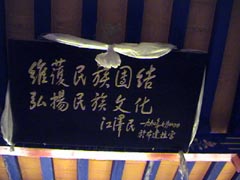 维护民族团结
弘揚民族文化
江泽民